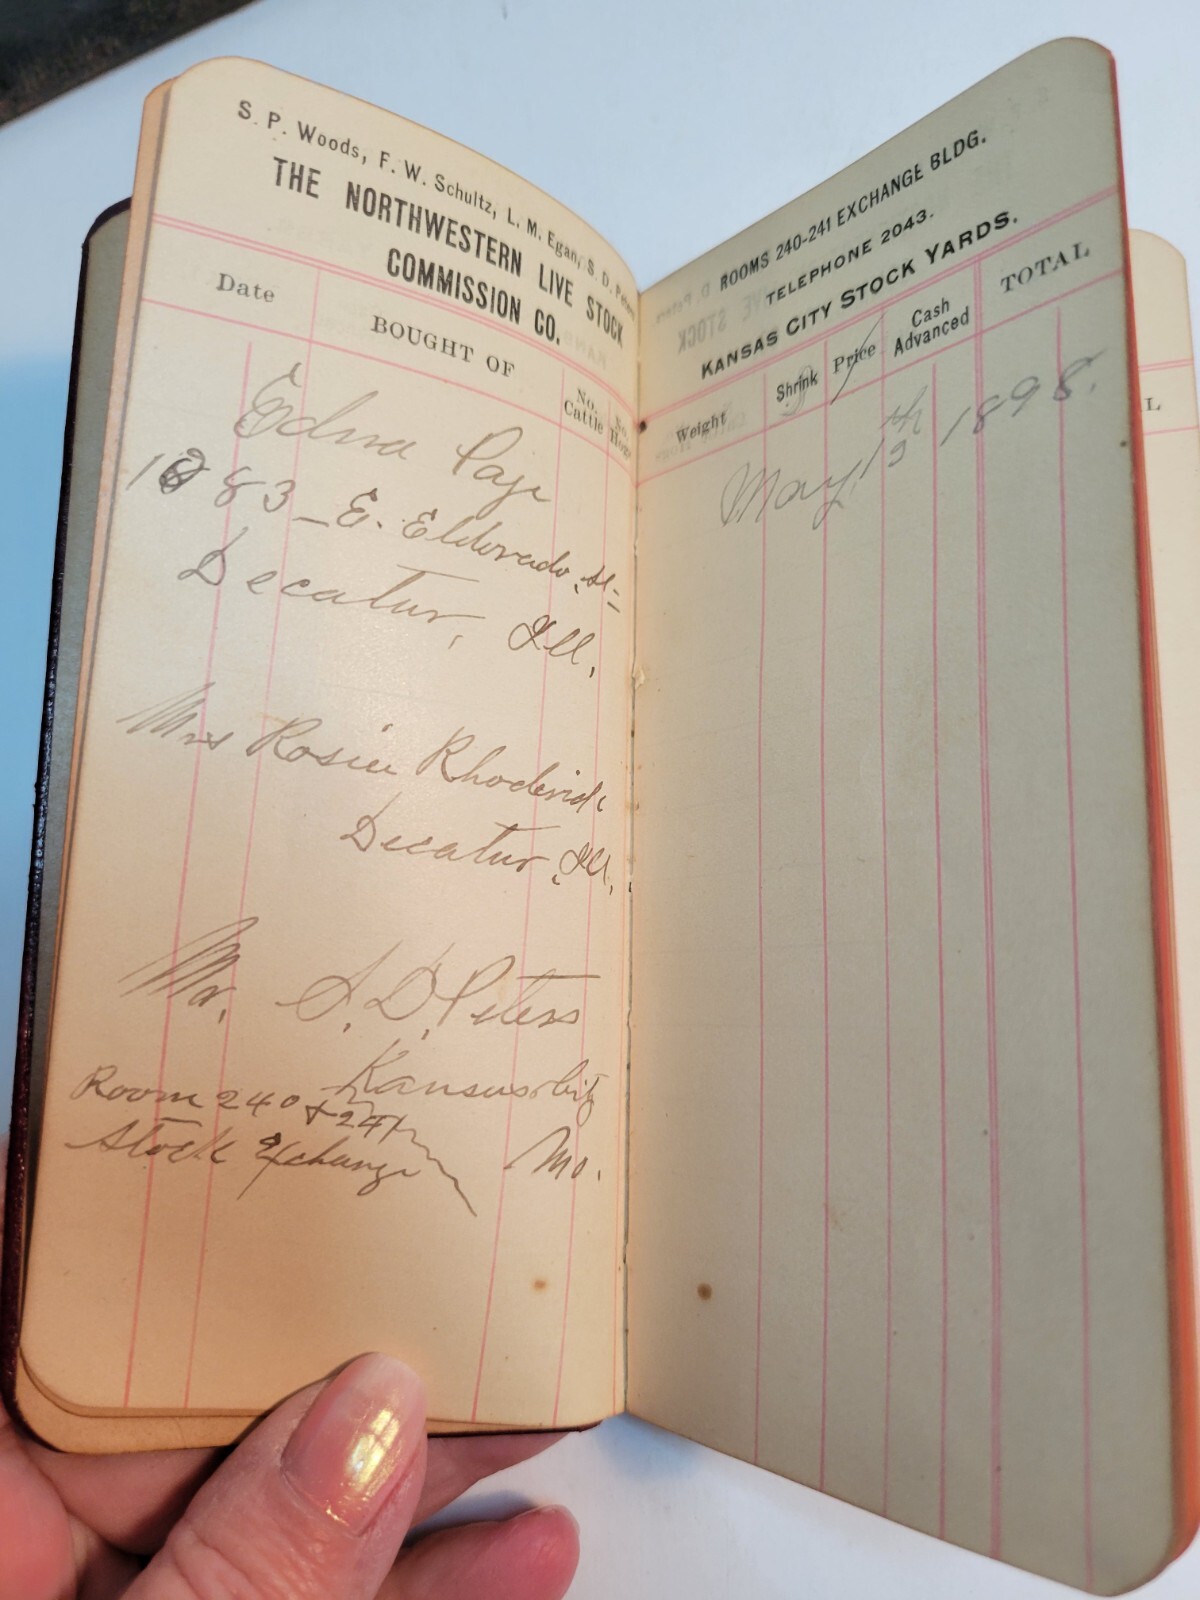 S. P. Woods, F. W. Schultz, L. M. Egan, S. D. Peters
THE NORTHWESTERN LIVE STOCK
COMMISSION CO.
Date
BOUGHT OF
No. Cattle
No. Hogs
Edna Page
1083 - E. Eldorado, St-
Decatur, Ill.
Mrs Rosiee Rhoderick
Decatur, Ill,
Mr. S. D. Peters
Kansas City
Mo.
Room 240 + 241
Stock Exchange
ROOMS 240-241 EXCHANGE BLDG.
TELEPHONE 2043.
KANSAS CITY STOCK YARDS.
Weight
Shrink
Price
Cash Advanced
TOTAL
May, th 1898.